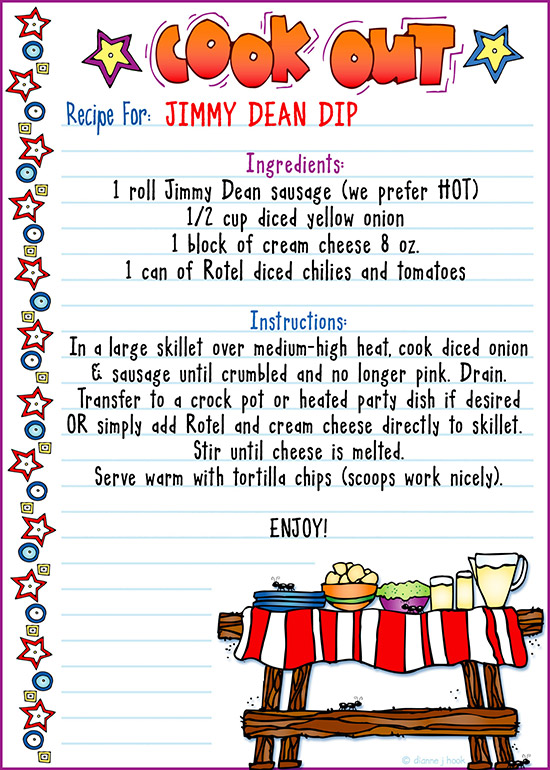 COOK OUT
Recipe For: JIMMY DEAN DIP
Ingredients:
1 roll Jimmy Dean sausage (we prefer HOT)
1/2 cup diced yellow onion
1 block of cream cheese 8 oz.
1 can of Rotel diced chilies and tomatoes
Instructions:
In a large skillet over medium-high heat, cook diced onion
& sausage until crumbled and no longer pink. Drain.
Transfer to a crock pot or heated party dish if desired
OR simply add Rotel and cream cheese directly to skillet.
Stir until cheese is melted.
Serve warm with tortilla chips (scoops work nicely).
ENJOY!
© dianne j hook